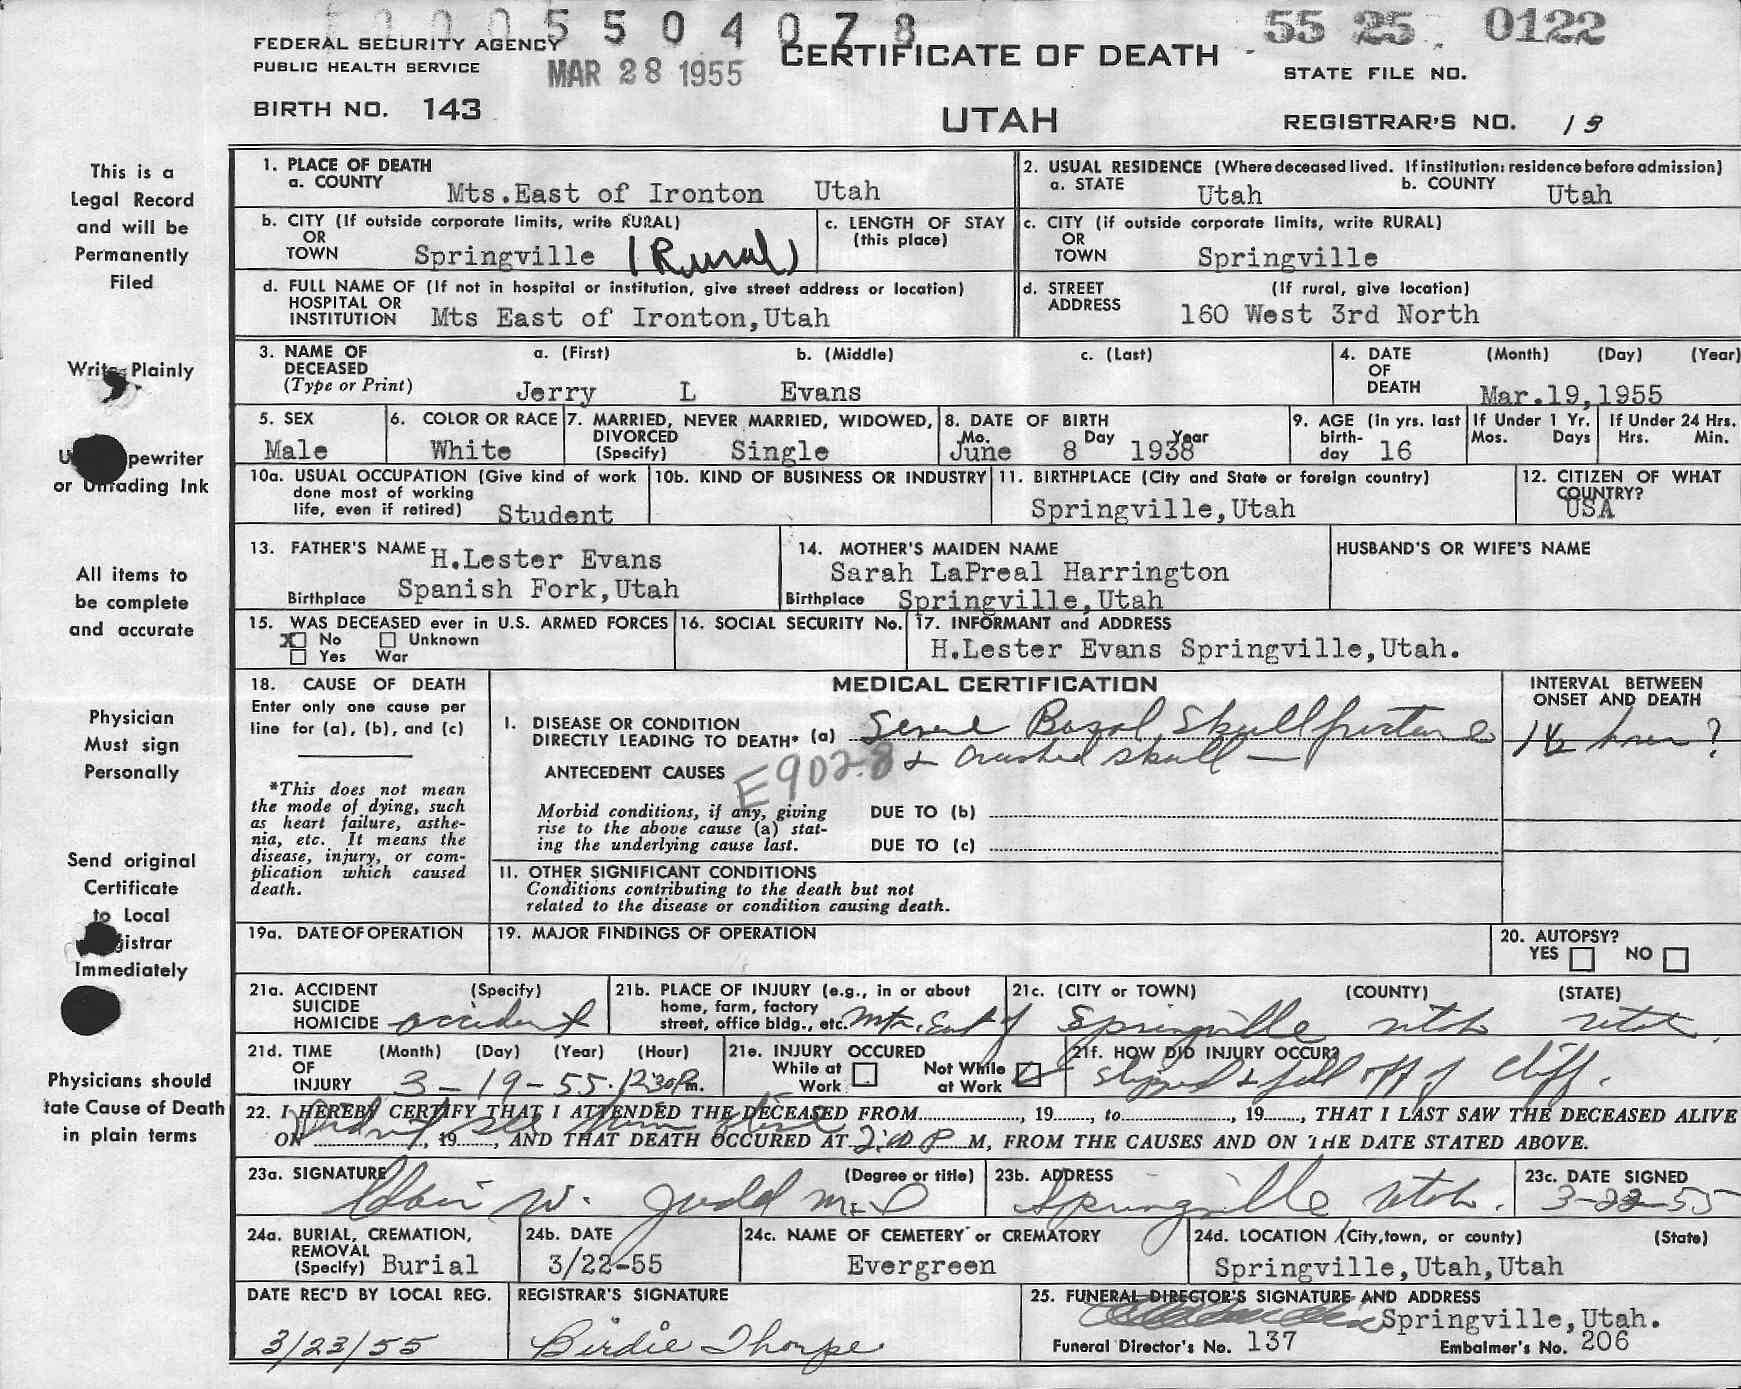 5504078
55 25 0122
FEDERAL SECURITY AGENCY
PUBLIC HEALTH SERVICE
MAR 28 1955
CERTIFICATE OF DEATH
STATE FILE NO.
BIRTH NO. 143
UTAH
REGISTRAR'S NO. 19
This is a
Legal Record
and will be
Permanently
Filed
Write Plainly
pewriter
or Unfading Ink
All items to
be complete
and accurate
Physician
Must sign
Personally
Send original
Certificate
to Local
gistrar
Immediately
Physicians should
tate Cause of Death
in plain terms
1. PLACE OF DEATH
a. COUNTY Mts.East of Ironton Utah
2. USUAL RESIDENCE (Where deceased lived. If institution: residence before admission)
a. STATE Utah b. COUNTY Utah
b. CITY (If outside corporate limits, write RURAL)
OR
TOWN Springville (Rural)
c. LENGTH OF STAY
(this place)
c. CITY (if outside corporate limits, write RURAL)
OR
TOWN Springville
d. FULL NAME OF (If not in hospital or institution, give street address or location)
HOSPITAL OR
INSTITUTION Mts East of Ironton,Utah
d. STREET (If rural, give location)
ADDRESS 160 West 3rd North
3. NAME OF DECEASED (Type or Print)
a. (First) b. (Middle) c. (Last)
Jerry L Evans
4. DATE OF DEATH (Month) (Day) (Year)
Mar.19,1955
5. SEX
Male
6. COLOR OR RACE
White
7. MARRIED, NEVER MARRIED, WIDOWED,
DIVORCED
(Specify) Single
8. DATE OF BIRTH
Mo. Day Year
June 8 1938
9. AGE (in yrs. last
birth-
day 16
If Under 1 Yr.
Mos. Days
If Under 24 Hrs.
Hrs. Min.
10a. USUAL OCCUPATION (Give kind of work
done most of working
life, even if retired) Student
10b. KIND OF BUSINESS OR INDUSTRY
11. BIRTHPLACE (City and State or foreign country)
Springville,Utah
12. CITIZEN OF WHAT
COUNTRY?
USA
13. FATHER'S NAME H.Lester Evans
Birthplace Spanish Fork,Utah
14. MOTHER'S MAIDEN NAME
Sarah LaPreal Harrington
Birthplace Springville,Utah
HUSBAND'S OR WIFE'S NAME
15. WAS DECEASED ever in U.S. ARMED FORCES
X No Unknown
Yes War
16. SOCIAL SECURITY No.
17. INFORMANT and ADDRESS
H.Lester Evans Springville,Utah.
18. CAUSE OF DEATH
Enter only one cause per
line for (a), (b), and (c)
*This does not mean
the mode of dying, such
as heart failure, asthe-
nia, etc. It means the
disease, injury, or com-
plication which caused
death.
MEDICAL CERTIFICATION
INTERVAL BETWEEN
ONSET AND DEATH
I. DISEASE OR CONDITION
DIRECTLY LEADING TO DEATH* (a) Severe Basal Skull fracture 1 1/2 hour?
& crushed skull —
ANTECEDENT CAUSES E902-8
Morbid conditions, if any, giving
rise to the above cause (a) stat-
ing the underlying cause last.
DUE TO (b)
DUE TO (c)
11. OTHER SIGNIFICANT CONDITIONS
Conditions contributing to the death but not
related to the disease or condition causing death.
19a. DATE OF OPERATION
19. MAJOR FINDINGS OF OPERATION
20. AUTOPSY?
YES NO
21a. ACCIDENT (Specify)
SUICIDE
HOMICIDE accident
21b. PLACE OF INJURY (e.g., in or about
home, farm, factory
street, office bldg., etc. Mtn. East of
21c. (CITY or TOWN) (COUNTY) (STATE)
Springville Utah Utah
21d. TIME OF INJURY (Month) (Day) (Year) (Hour)
3-19-55. 12:30 Pm.
21e. INJURY OCCURED
While at Work
Not While at Work
21f. HOW DID INJURY OCCUR?
slipped & fell off of cliff.
22. I HEREBY CERTIFY THAT I ATTENDED THE DECEASED FROM............, 19...., to............, 19...., THAT I LAST SAW THE DECEASED ALIVE
Didnt see him alive
ON............, 19...., AND THAT DEATH OCCURED AT 2:00 P M, FROM THE CAUSES AND ON THE DATE STATED ABOVE.
23a. SIGNATURE (Degree or title)
W. Judd M.D
23b. ADDRESS
Springville Utah.
23c. DATE SIGNED
3-22-55
24a. BURIAL, CREMATION,
REMOVAL
(Specify) Burial
24b. DATE
3/22-55
24c. NAME OF CEMETERY or CREMATORY
Evergreen
24d. LOCATION (City,town, or county) (State)
Springville,Utah,Utah
DATE REC'D BY LOCAL REG.
3/23/55
REGISTRAR'S SIGNATURE
Birdie Thorpe
25. FUNERAL DIRECTOR'S SIGNATURE AND ADDRESS
Springville,Utah.
Funeral Director's No. 137 Embalmer's No. 206